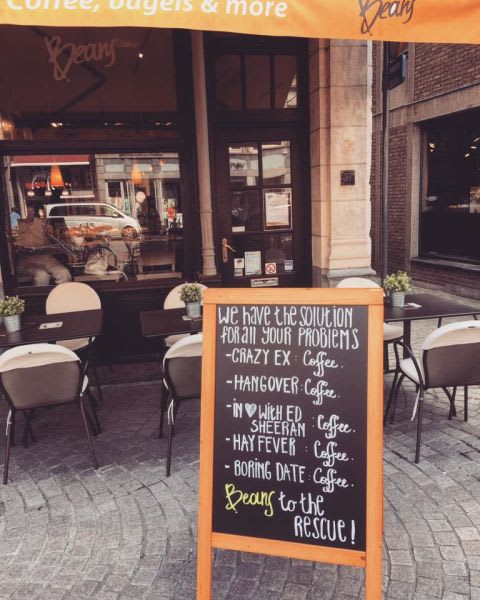 Coffee, bagels & more
Beans
Beans
We have the solution
for all your problems
-CRAZY EX : Coffee.
-HANGOVER: Coffee.
-IN ♥ with ED
SHEERAN : Coffee.
-HAY FEVER : Coffee.
-BORING DATE: Coffee.
Beans to the
RESCUE!